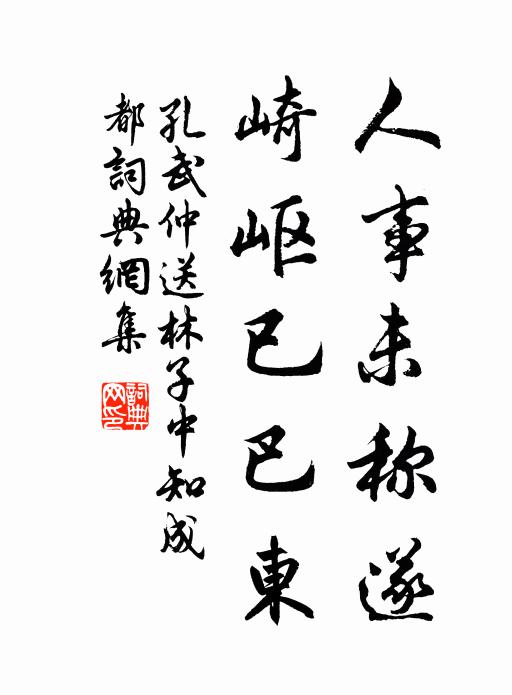 人事未称遂
崎岖已巴東
孔武仲送林子中知成
都詞典網集
詞典網印